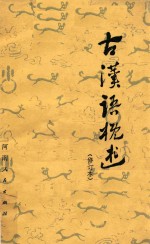 古漢語概述
(修订本)
河南人民出版社